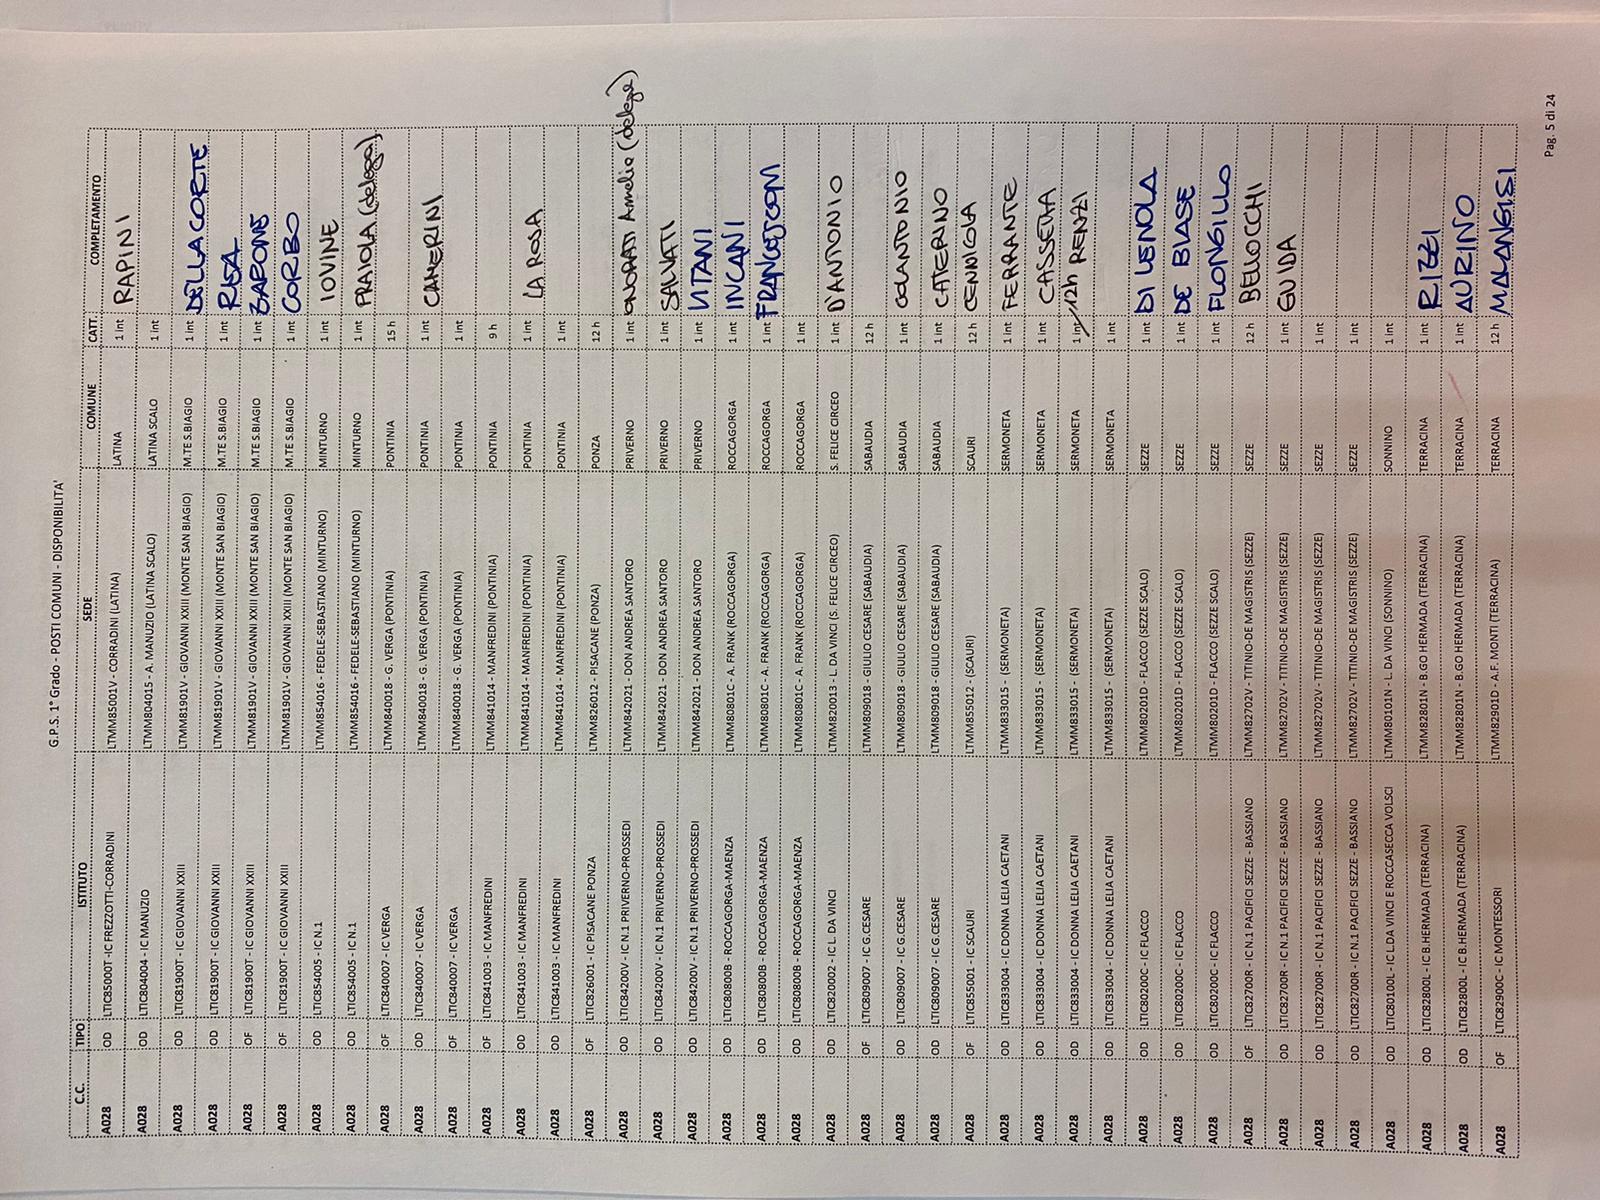 G.P.S. 1° Grado - POSTI COMUNI - DISPONIBILITA'
C.C. TIPO ISTITUTO SEDE COMUNE CATT. COMPLETAMENTO
A028 OD LTIC85000T -IC FREZZOTTI-CORRADINI LTMM85001V - CORRADINI (LATINA) LATINA 1 int RAPINI
A028 OD LTIC804004 - IC MANUZIO LTMM804015 - A. MANUZIO (LATINA SCALO) LATINA SCALO 1 int
A028 OD LTIC81900T - IC GIOVANNI XXIII LTMM81901V - GIOVANNI XXIII (MONTE SAN BIAGIO) M.TE S.BIAGIO 1 int DELLA CORTE
A028 OD LTIC81900T - IC GIOVANNI XXIII LTMM81901V - GIOVANNI XXIII (MONTE SAN BIAGIO) M.TE S.BIAGIO 1 int
A028 OF LTIC81900T - IC GIOVANNI XXIII LTMM81901V - GIOVANNI XXIII (MONTE SAN BIAGIO) M.TE S.BIAGIO 1 int
A028 OF LTIC81900T - IC GIOVANNI XXIII LTMM81901V - GIOVANNI XXIII (MONTE SAN BIAGIO) M.TE S.BIAGIO 1 int CORBO
A028 OD LTIC854005 - IC N.1 LTMM854016 - FEDELE-SEBASTIANO (MINTURNO) MINTURNO 1 int IOVINE
A028 OD LTIC854005 - IC N.1 LTMM854016 - FEDELE-SEBASTIANO (MINTURNO) MINTURNO 1 int PRAIOLA (delega)
A028 OF LTIC840007 - IC VERGA LTMM840018 - G. VERGA (PONTINIA) PONTINIA 15 h
A028 OD LTIC840007 - IC VERGA LTMM840018 - G. VERGA (PONTINIA) PONTINIA 1 int CAMERINI
A028 OF LTIC840007 - IC VERGA LTMM840018 - G. VERGA (PONTINIA) PONTINIA 1 int
A028 OF LTIC841003 - IC MANFREDINI LTMM841014 - MANFREDINI (PONTINIA) PONTINIA 9 h
A028 OD LTIC841003 - IC MANFREDINI LTMM841014 - MANFREDINI (PONTINIA) PONTINIA 1 int LA ROSA
A028 OD LTIC841003 - IC MANFREDINI LTMM841014 - MANFREDINI (PONTINIA) PONTINIA 1 int
A028 OF LTIC826001 - IC PISACANE PONZA LTMM826012 - PISACANE (PONZA) PONZA 12 h
A028 OD LTIC84200V - IC N.1 PRIVERNO-PROSSEDI LTMM842021 - DON ANDREA SANTORO PRIVERNO 1 int ONORATI Amelio (delega)
A028 OD LTIC84200V - IC N.1 PRIVERNO-PROSSEDI LTMM842021 - DON ANDREA SANTORO PRIVERNO 1 int SALVATI
A028 OD LTIC84200V - IC N.1 PRIVERNO-PROSSEDI LTMM842021 - DON ANDREA SANTORO PRIVERNO 1 int VITANI
A028 OD LTIC80800B - ROCCAGORGA-MAENZA LTMM80801C - A. FRANK (ROCCAGORGA) ROCCAGORGA 1 int INCANI
A028 OD LTIC80800B - ROCCAGORGA-MAENZA LTMM80801C - A. FRANK (ROCCAGORGA) ROCCAGORGA 1 int FRANCESCONI
A028 OD LTIC80800B - ROCCAGORGA-MAENZA LTMM80801C - A. FRANK (ROCCAGORGA) ROCCAGORGA 1 int
A028 OD LTIC820002 - IC L. DA VINCI LTMM820013 - L. DA VINCI (S. FELICE CIRCEO) S. FELICE CIRCEO 1 int D'ANTONIO
A028 OF LTIC809007 - IC G.CESARE LTMM809018 - GIULIO CESARE (SABAUDIA) SABAUDIA 12 h
A028 OD LTIC809007 - IC G.CESARE LTMM809018 - GIULIO CESARE (SABAUDIA) SABAUDIA 1 int COLANTONIO
A028 OD LTIC809007 - IC G.CESARE LTMM809018 - GIULIO CESARE (SABAUDIA) SABAUDIA 1 int CATERINO
A028 OF LTIC855001 - IC SCAURI LTMM855012 - (SCAURI) SCAURI 12 h CENNICOLA
A028 OD LTIC833004 - IC DONNA LELIA CAETANI LTMM833015 - (SERMONETA) SERMONETA 1 int FERRANTE
A028 OD LTIC833004 - IC DONNA LELIA CAETANI LTMM833015 - (SERMONETA) SERMONETA 1 int CASSETTA
A028 OD LTIC833004 - IC DONNA LELIA CAETANI LTMM833015 - (SERMONETA) SERMONETA 1 int 12h RENZI
A028 OD LTIC833004 - IC DONNA LELIA CAETANI LTMM833015 - (SERMONETA) SERMONETA 1 int
A028 OD LTIC80200C - IC FLACCO LTMM80201D - FLACCO (SEZZE SCALO) SEZZE 1 int DI LENOLA
A028 OD LTIC80200C - IC FLACCO LTMM80201D - FLACCO (SEZZE SCALO) SEZZE 1 int DE BIASE
A028 OD LTIC80200C - IC FLACCO LTMM80201D - FLACCO (SEZZE SCALO) SEZZE 1 int FLONGILLO
A028 OF LTIC82700R - IC N.1 PACIFICI SEZZE - BASSIANO LTMM82702V - TITINIO-DE MAGISTRIS (SEZZE) SEZZE 12 h BELLOCCHI
A028 OD LTIC82700R - IC N.1 PACIFICI SEZZE - BASSIANO LTMM82702V - TITINIO-DE MAGISTRIS (SEZZE) SEZZE 1 int GUIDA
A028 OD LTIC82700R - IC N.1 PACIFICI SEZZE - BASSIANO LTMM82702V - TITINIO-DE MAGISTRIS (SEZZE) SEZZE 1 int
A028 OD LTIC82700R - IC N.1 PACIFICI SEZZE - BASSIANO LTMM82702V - TITINIO-DE MAGISTRIS (SEZZE) SEZZE 1 int
A028 OD LTIC80100L - IC L.DA VINCI E ROCCASECCA VOLSCI LTMM80101N - L. DA VINCI (SONNINO) SONNINO 1 int
A028 OD LTIC82800L - IC B.HERMADA (TERRACINA) LTMM82801N - B.GO HERMADA (TERRACINA) TERRACINA 1 int RIZZI
A028 OD LTIC82800L - IC B.HERMADA (TERRACINA) LTMM82801N - B.GO HERMADA (TERRACINA) TERRACINA 1 int AURINO
A028 OF LTIC82900C - IC MONTESSORI LTMM82901D - A.F. MONTI (TERRACINA) TERRACINA 12 h MALANGISI
Pag. 5 di 24